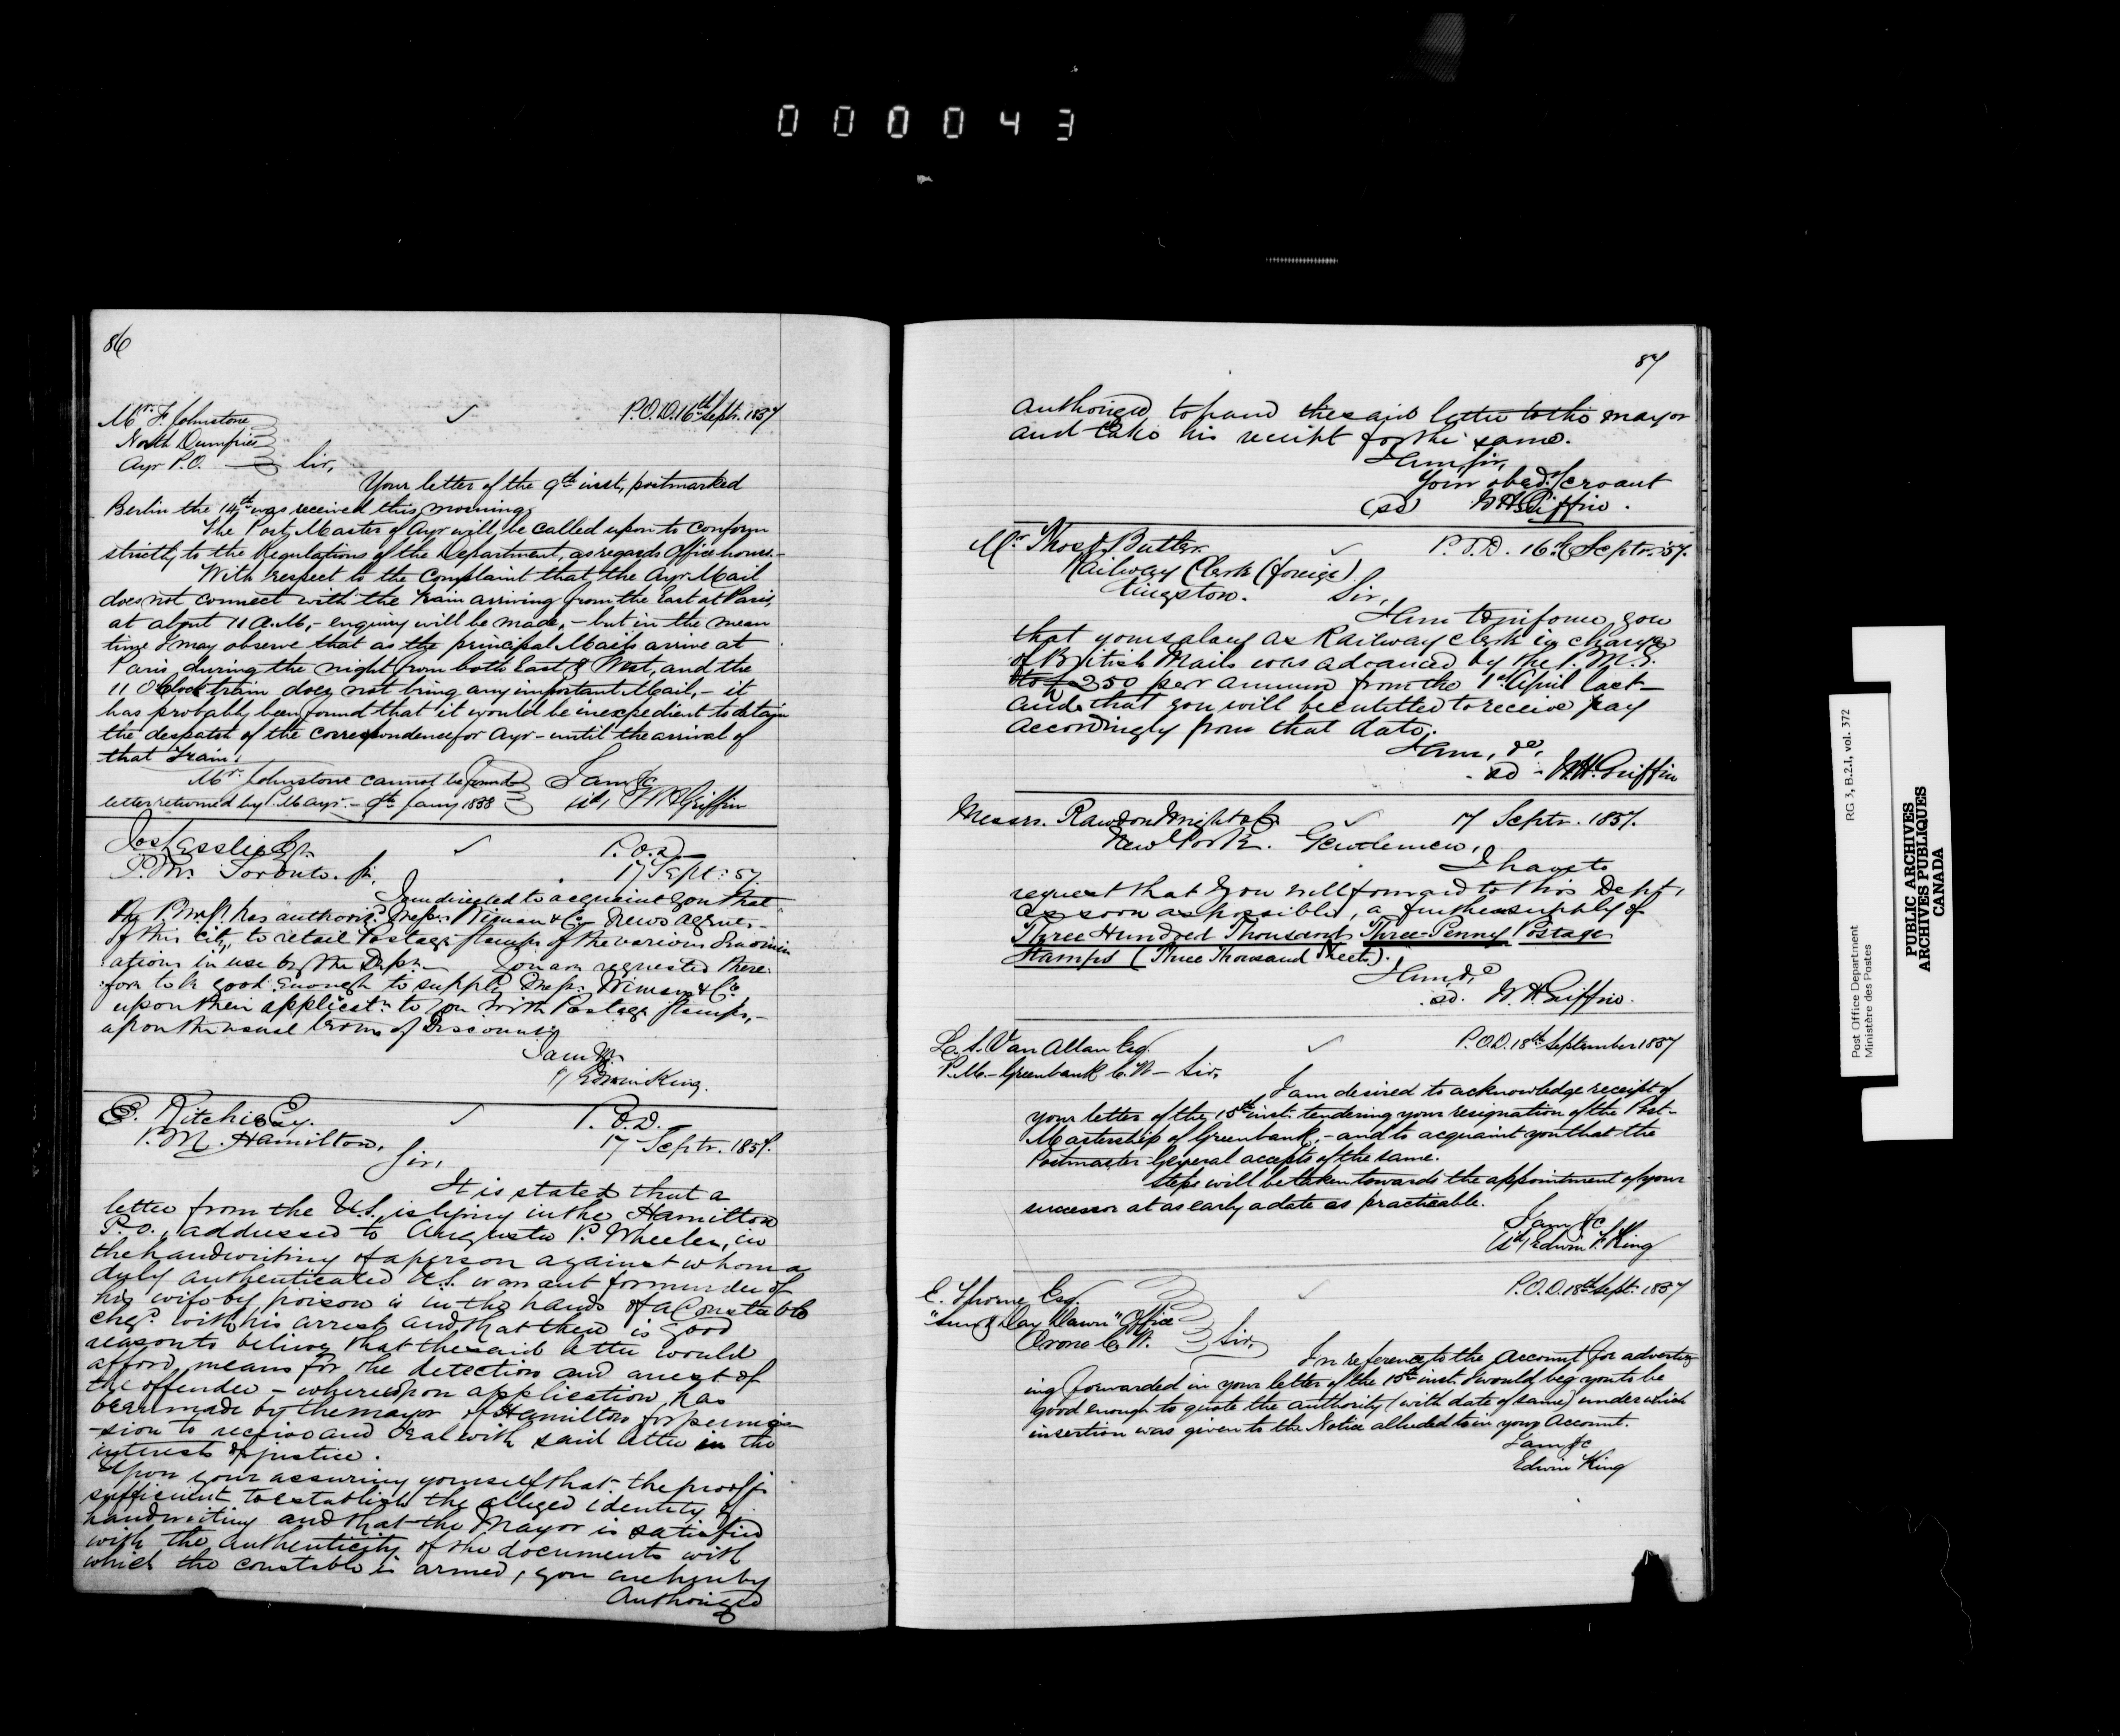 000043
86
P.O.D. 16th Septr. 1857
Mr. F. Johnstone
North Dumfries
Ayr P.O. Sir,
Your letter of the 9th inst, postmarked
Berlin the 14th was received this morning.
The Post Master of Ayr will be called upon to conform
strictly to the Regulations of the Department, as regards Office hours.-
With respect to the Complaint that the Ayr Mail
does not connect with the Train arriving from the East at Paris,
at about 11 A.M., - enquiry will be made, - but in the mean
time I may observe that as the principal Mails arrive at
Paris during the night from both East & West, and the
11 O'Clock train does not bring any important Mail, - it
has probably been found that it would be inexpedient to detain
the despatch of the correspondence for Ayr - until the arrival of
that Train.
Mr. Johnstone cannot be found
letter returned by P.M. Ayr. - 9th Jany 1858
I am &c
sd, W H Griffin
Jos Lesslie Esqr.
P.O.D.
P.M. Toronto. Sir,
17 Sept: 57.
I am directed to acquaint you that
the P.M.G. has authorisd. Messrs. Wiman & Co. News agents
of this City, to retail Postage Stamps of the various denomin
ations in use by the Dept. You are requested there-
fore to be good enough to supply Messrs. Wiman & Co.
upon their applicatn. to you with Postage Stamps,-
upon the usual terms of Discount.
I am &c.
Edwin King.
E. Ritchie Esq.
P.O.D.
P.M. Hamilton.
17 Septr. 1857.
Sir,
It is stated that a
letter from the U.S. is lying in the Hamilton
P.O., addressed to Augusta P. Wheeler, in
the handwriting of a person against whom a
duly authenticated U.S. warrant for murder of
his wife by poison is in the hands of a Constable
chgd. with his arrest and that there is good
reason to believe that the said letter would
afford means for the detection and arrest of
the offender - whereupon application has
been made by the mayor of Hamilton for permis
-sion to receive and deal with said letter in the
interests of justice.
Upon your assuring yourself that the proof is
sufficient to establish the alleged identity of
handwriting and that the Mayor is satisfied
with the authenticity of the documents with
which the constable is armed, you are hereby
Authorized
87
authorized to hand the said letter to the mayor
and take his receipt for the same.
I am, Sir,
Your obedt. Servant
(sd) W H Griffin.
Mr. Thos. Butler
P.O.D. 16th Septr. 57.
Railway Clerk (foreign)
Kingston. Sir,
I am to inform you
that your salary as Railway Clerk in charge
of British Mails was advanced by the P.M.G.
to £250 per annum from the 1st April last -
and that you will be entitled to receive pay
accordingly from that date.
I am, &c,
sd - W. H. Griffin
Messrs. Rawdon Wright & Co
17 Septr. 1857.
New York. Gentlemen,
I have to
request that you will forward to this Dept,
as soon as possible, a further supply of
Three Hundred Thousand Three-Penny Postage
Stamps (Three Thousand Sheets).
I am, &c
sd. W. H. Griffin.
L. S. Van Allan Esq.
P.O.D. 18th September 1857
P.M. - Greenbank C.W - Sir,
I am desired to acknowledge receipt of
your letter of the 15th inst. tendering your resignation of the Post-
Mastership of Greenbank, - and to acquaint you that the
Postmaster General accepts of the same.
Steps will be taken towards the appointment of your
successor at as early a date as practicable.
I am &c
sd, Edwin F. King
E. Thorne Esq.
P.O.D. 18th Septr. 1857
"Sun & Day Dawn" Office
Orono C.W. Sir,
In reference to the Account for advertis
ing forwarded in your letter of the 15th inst. I would beg you to be
good enough to quote the authority (with date of same) under which
insertion was given to the Notice alluded to in your Account.
I am &c
Edwin King
Post Office Department RG 3, B.2.I, vol. 372
Ministère des Postes
PUBLIC ARCHIVES
ARCHIVES PUBLIQUES
CANADA